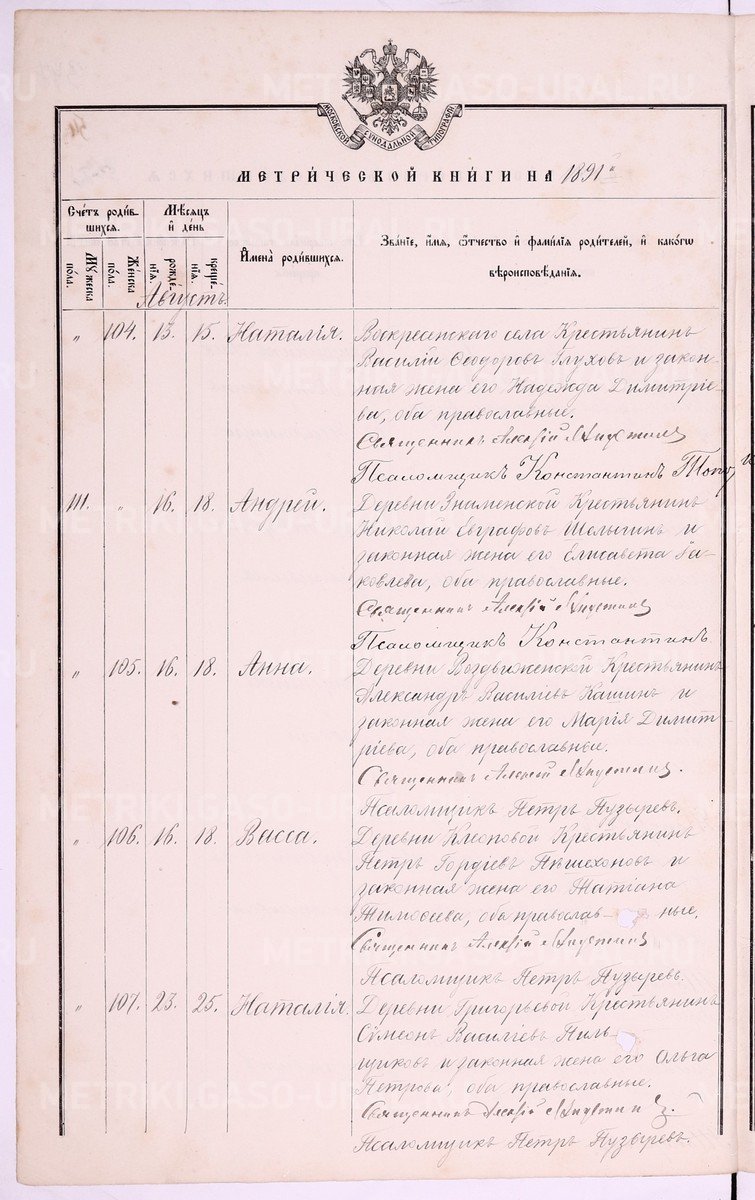 МОСКОВСКОЙ СѴНОДАЛЬНОЙ ТИПОГРАФІИ
МЕТРИ́ЧЕСКОЙ КНИ́ГИ НА 1891
Сче́тъ роди́вшихся.
Мѣ́сяцъ и́ де́нь
И҆мена̀ роди́вшихся.
Зва́ніе, и҆́мя, ѻ҆́тчество и҆ фами́лія роди́телей, и҆ како́гѡ
вѣроисповѣ́данія.
Му́жеска по́ла.
Же́нска по́ла.
рожде́нія.
креще́нія.
Августъ.
" 104. 13. 15. Наталія. Воскресенскаго села Крестьянинъ
Василій Ѳеодоровъ Глуховъ и закон-
ная жена его Надежда Димитріе-
ва, оба православные.
Священникъ Алексій
Псаломщикъ Константинъ
111. " 16. 18. Андрей. Деревни Знаменской Крестьянинъ
Николай Евграфовъ Шелыгинъ и
законная жена его Елисавета Я-
ковлева, оба православные.
Священникъ Алексій
Псаломщикъ Константинъ
" 105. 16. 18. Анна. Деревни Воздвиженской Крестьянинъ
Александръ Василіевъ Кашинъ и
законная жена его Марія Димит-
ріева, оба православные.
Священникъ Алексій
Псаломщикъ Петръ Пузыревъ.
" 106. 16. 18. Васса. Деревни Клеоповой Крестьянинъ
Петръ Гордіевъ Пѣшехоновъ и
законная жена его Татіана
Тимоѳеева, оба православ- ные.
Священникъ Алексій
Псаломщикъ Петръ Пузыревъ.
" 107. 23. 25. Наталія. Деревни Григорьевой Крестьянинъ
Сѵмеонъ Василіевъ Пиль-
щиковъ и законная жена его Ольга
Петрова, оба православные.
Священникъ Алексій
Псаломщикъ Петръ Пузыревъ.